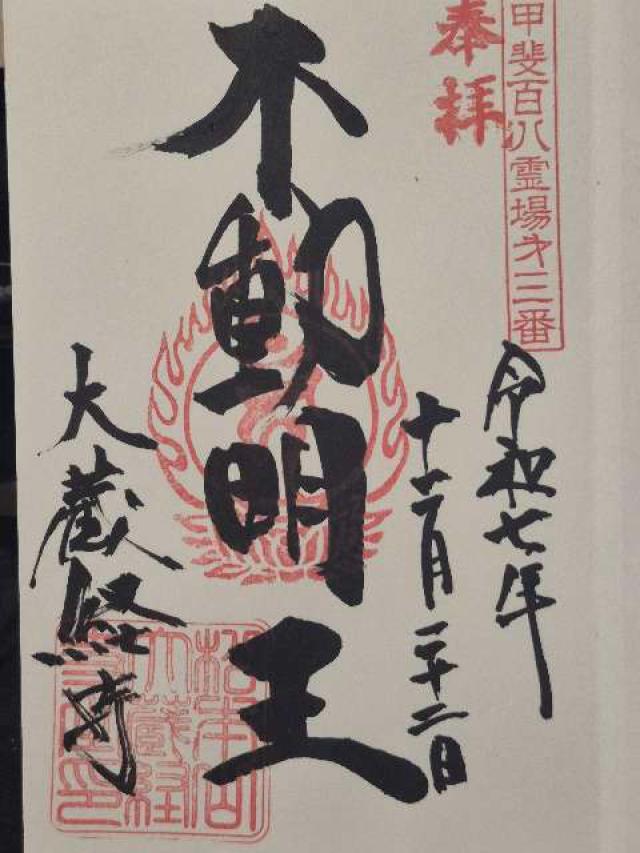 甲斐百八霊場才三番
奉拝
令和七年
十二月二十二日
不動明王
大蔵経寺
松本山
大蔵経